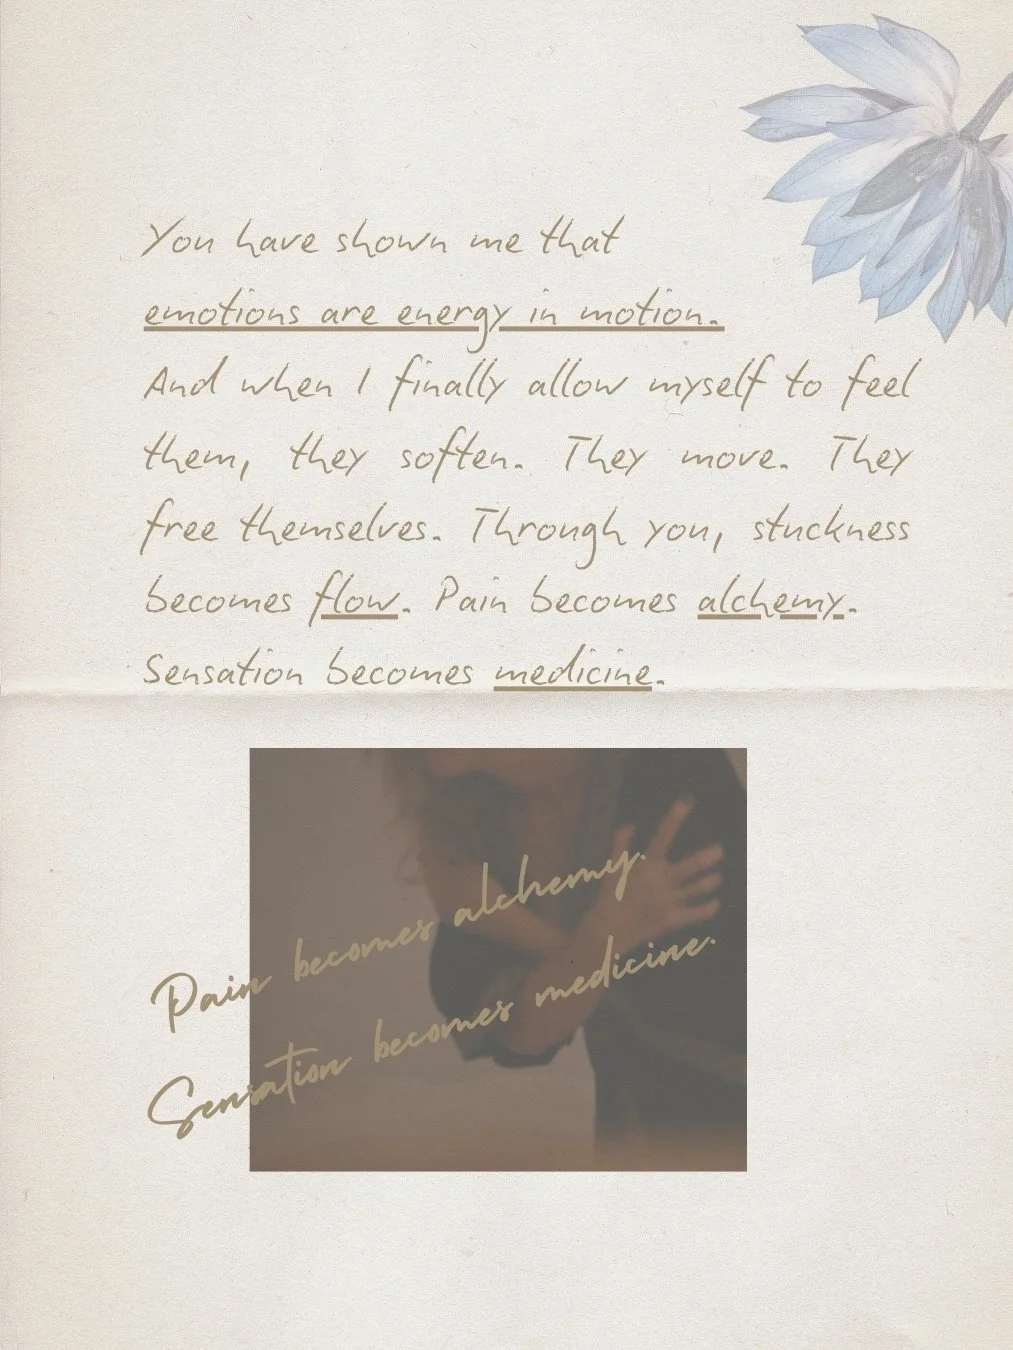 You have shown me that
emotions are energy in motion.
And when I finally allow myself to feel
them, they soften. They move. They
free themselves. Through you, stuckness
becomes flow. Pain becomes alchemy.
Sensation becomes medicine.
Pain becomes alchemy.
Sensation becomes medicine.